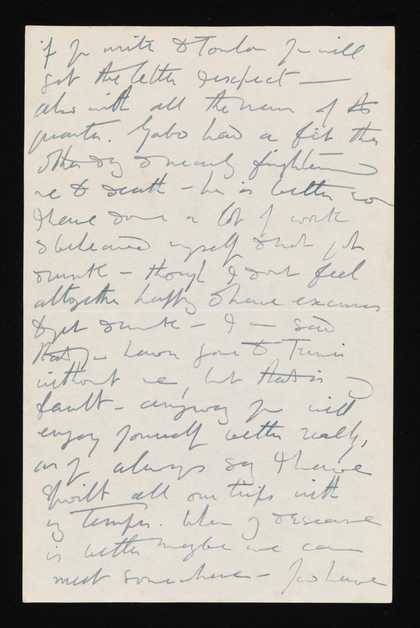 if you write to Toulon you will
get the letter & respect —
also with all the news of the
quarter. Gabo had a fit the
other day & nearly frightened
me to death — he is better now
I have done a lot of work
& behaved myself & not got
drunk — though I dont feel
altogether happy & have excuses
to get drunk — I — said
that you have gone to Tunis
without me, but that is my
fault — anyway you will
enjoy yourself better really,
as you always say I have
spoilt all our trips with
my temper. When my disease
is better maybe we can
meet somewhere — You have